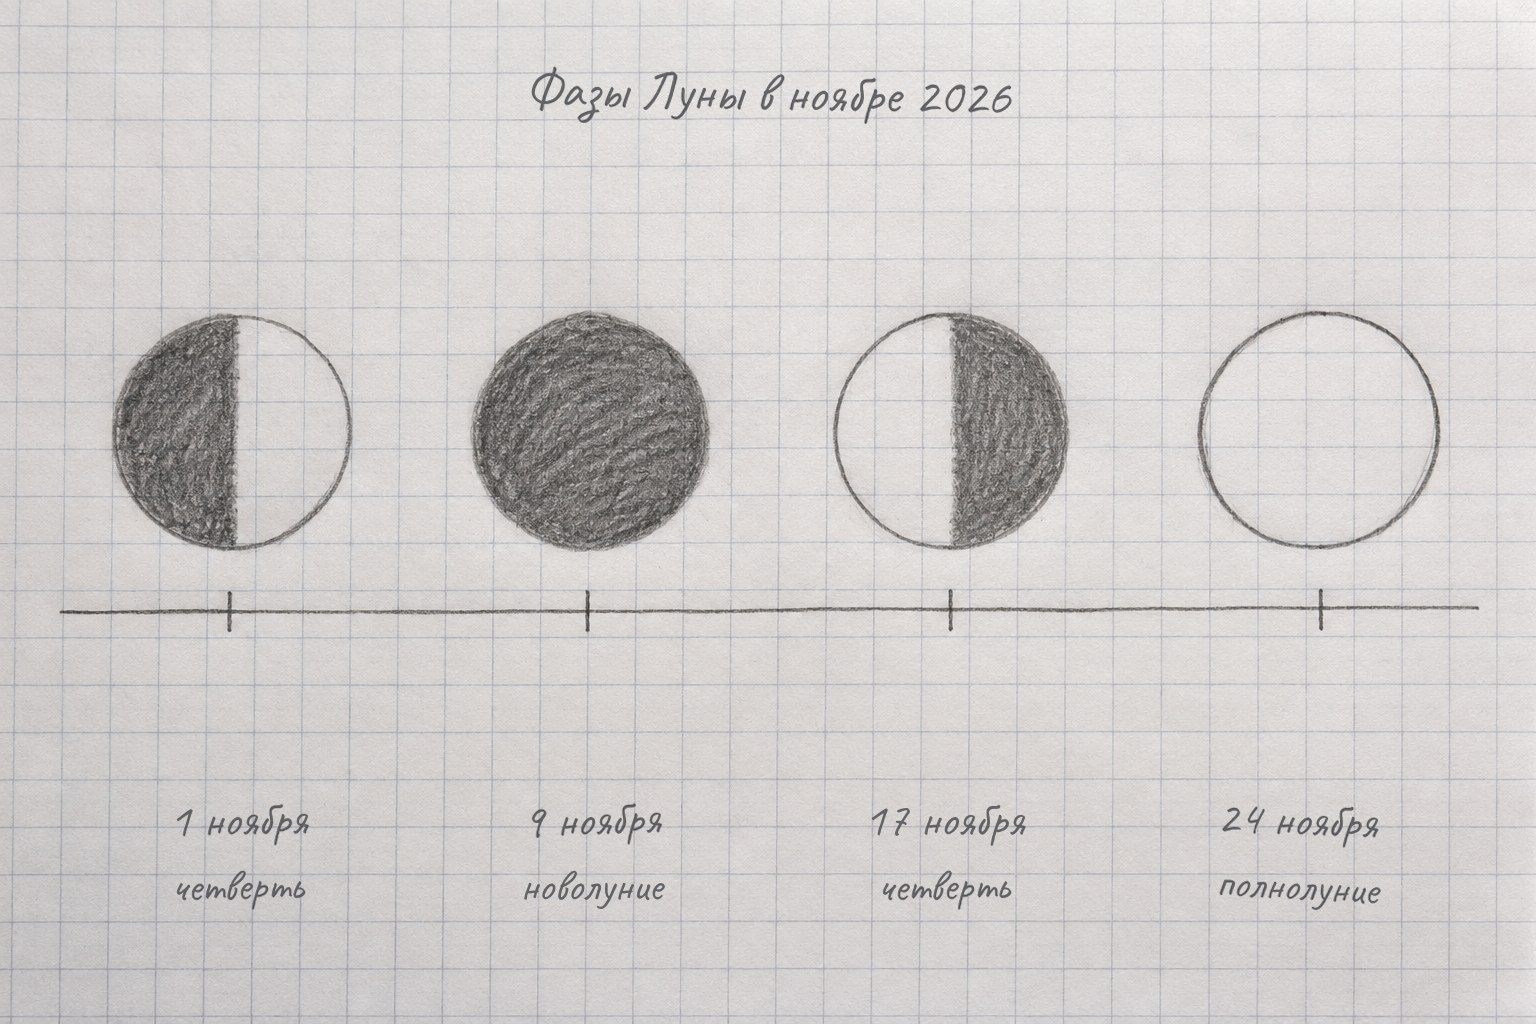 Фазы Луны в ноябре 2026
1 ноября
четверть
9 ноября
новолуние
17 ноября
четверть
24 ноября
полнолуние